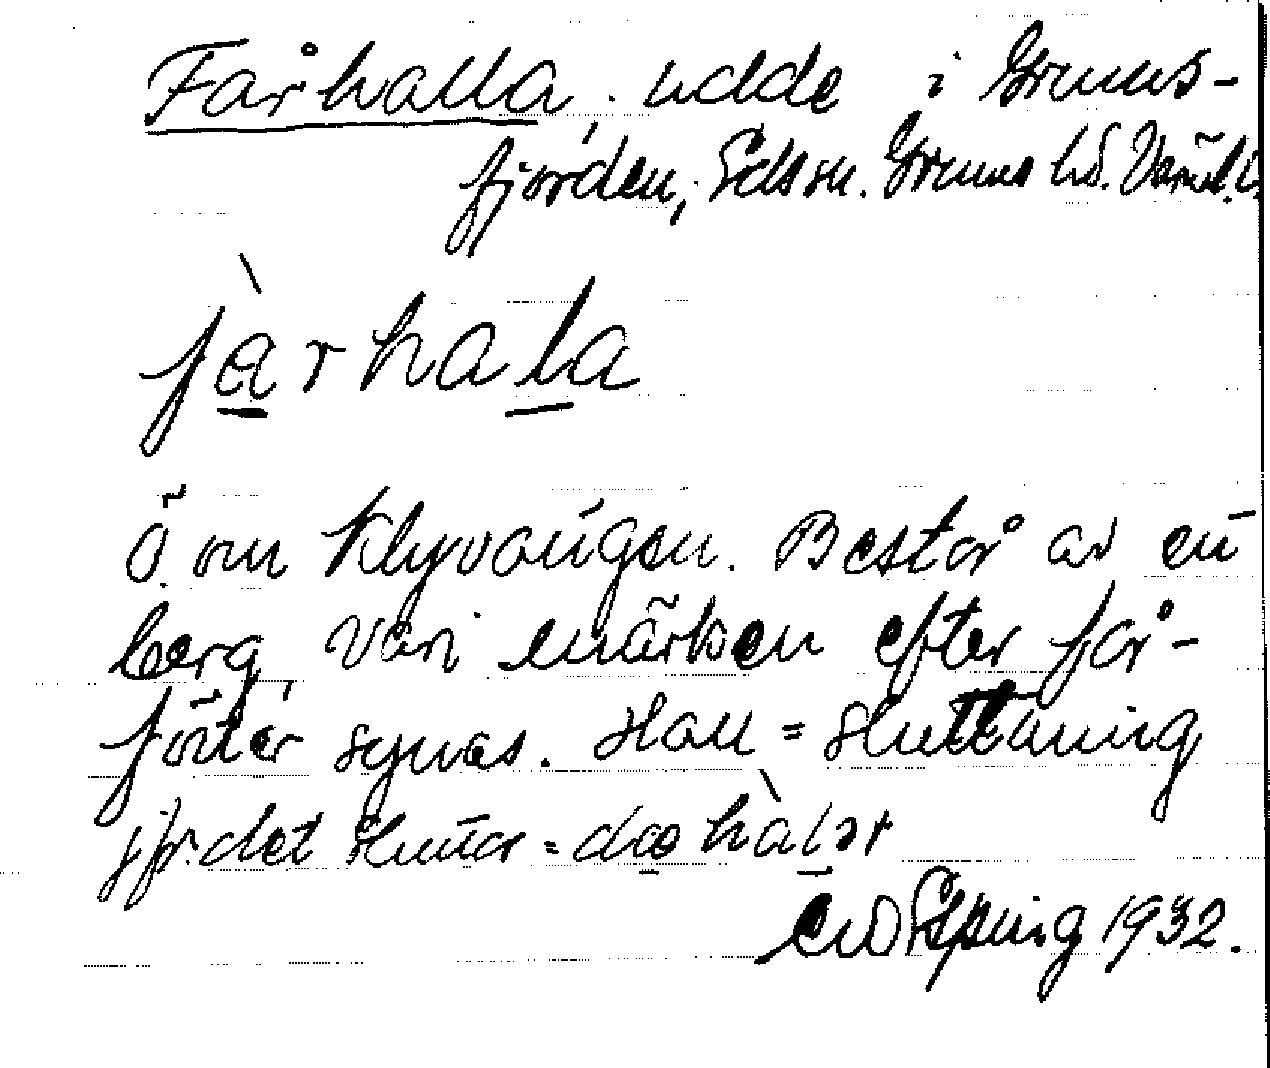 Fårhalla, udde i Grums-
fjorden, Eds sn. Grums hd. Värml.
fàrhala
Ö. om Klyvaügen. Består av en
berg, vari märken efter får-
fötter synas. Hall = sluttning
jfr. det slutar = dæ hàlər
1932.